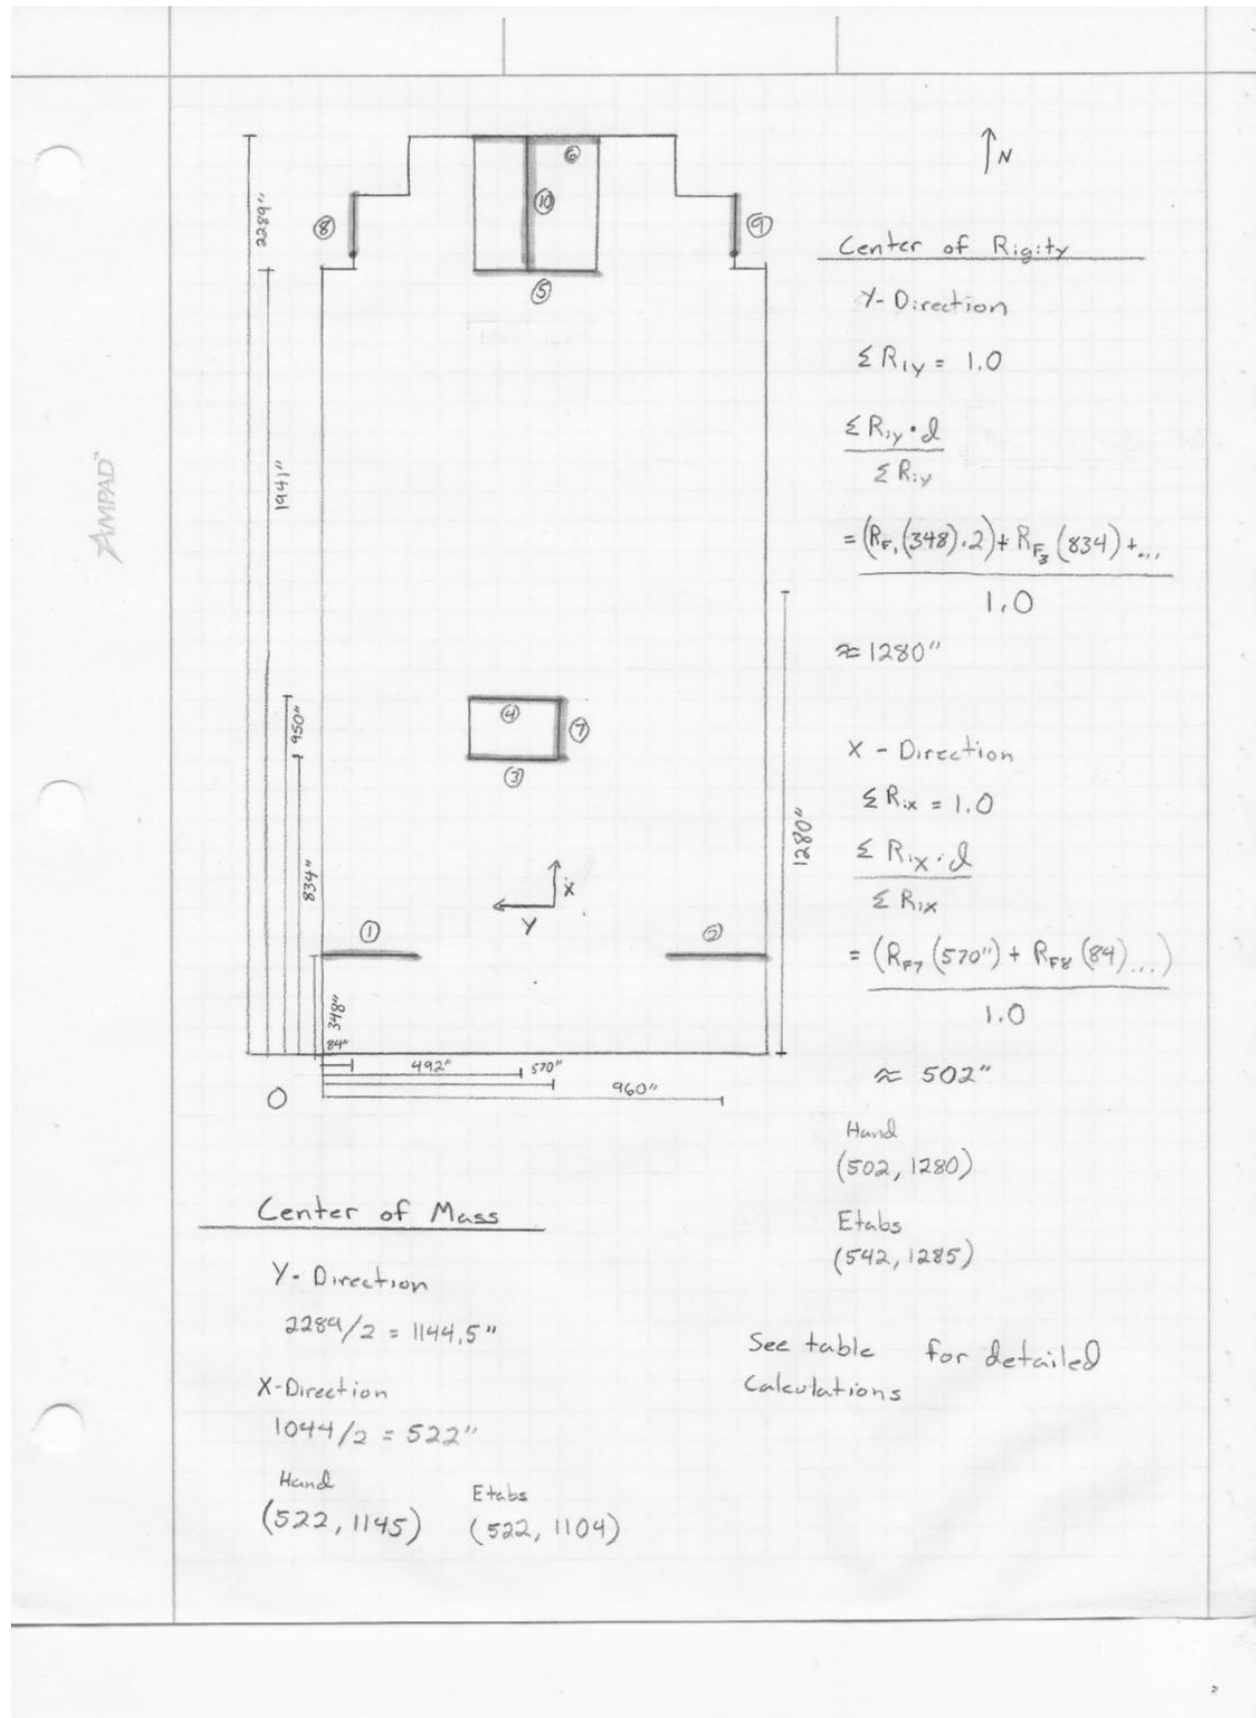 N
⑥
⑩
⑧
⑨
⑤
2289"
1941"
④
⑦
③
950"
834"
1280"
X
Y
①
②
348"
84"
492"
570"
960"
O
AMPAD™
Center of Rigity
Y-Direction
Σ Riy = 1.0
Σ Riy · d
Σ Riy
= (RF1 (348) · 2) + RF3 (834) + ...
1.0
≈ 1280"
X - Direction
Σ Rix = 1.0
Σ Rix · d
Σ Rix
= (RF7 (570") + RF8 (84) ...)
1.0
≈ 502"
Hand
(502, 1280)
Etabs
(542, 1285)
See table for detailed
Calculations
Center of Mass
Y- Direction
2289/2 = 1144.5"
X-Direction
1044/2 = 522"
Hand
(522, 1145)
Etabs
(522, 1104)